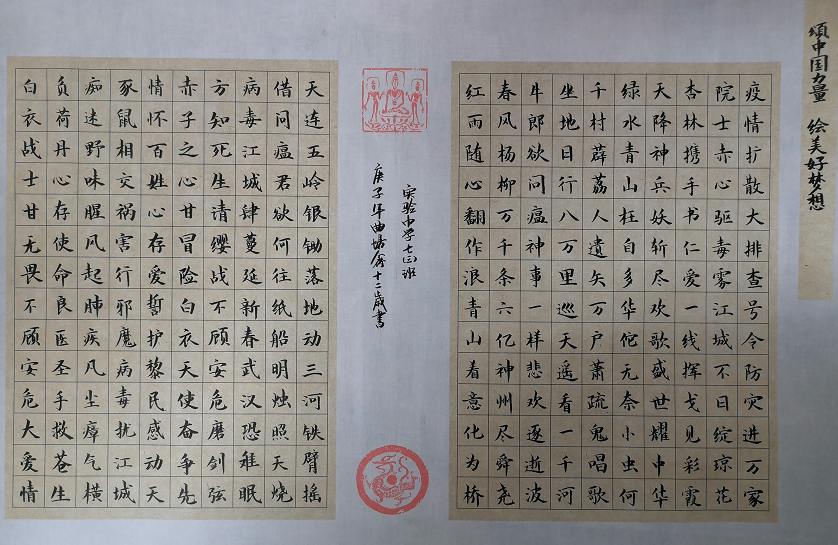 頌中国力量 绘美好梦想
疫情扩散大排查号令防灾进万家
院士赤心驱毒雾江城不日绽琼花
杏林携手书仁爱一线挥戈见彩霞
天降神兵妖斩尽欢歌盛世耀中华
绿水青山枉自多华佗无奈小虫何
千村薜荔人遗矢万户萧疏鬼唱歌
坐地日行八万里巡天遥看一千河
牛郎欲问瘟神事一样悲欢逐逝波
春风杨柳万千条六亿神州尽舜尧
红雨随心翻作浪青山着意化为桥
实验中学七班
庚子年曲十二岁书
天连五岭银锄落地动三河铁臂摇
借问瘟君欲何往纸船明烛照天烧
病毒江城肆蔓延新春武汉恐难眠
方知死生请缨战不顾安危磨剑弦
赤子之心甘冒险白衣天使奋争先
情怀百姓心存爱誓护黎民感动天
豕鼠相交祸害行邪魔病毒扰江城
痴迷野味腥风起肺疾凡尘瘴气横
负荷丹心存使命良医圣手救苍生
白衣战士甘无畏不顾安危大爱情